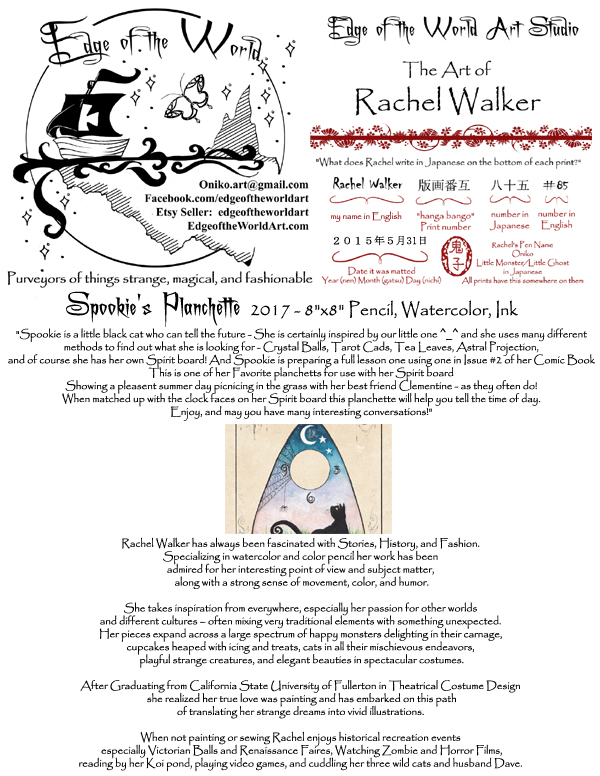 Edge of the World
Oniko.art@gmail.com
Facebook.com/edgeoftheworldart
Etsy Seller: edgeoftheworldart
EdgeoftheWorldArt.com
Purveyors of things strange, magical, and fashionable
Edge of the World Art Studio
The Art of
Rachel Walker
"What does Rachel write in Japanese on the bottom of each print?"
Rachel Walker 版画番互 八十五 #85
my name in English
"hanga bango"
Print number
number in
Japanese
number in
English
2015年5月31日
Date it was matted
Year (nen) Month (gatsu) Day (nichi)
鬼子
Rachel's Pen Name
Oniko
Little Monster/Little Ghost
in Japanese
All prints have this somewhere on them
Spookie's Planchette 2017 - 8"x8" Pencil, Watercolor, Ink
"Spookie is a little black cat who can tell the future - She is certainly inspired by our little one ^_^ and she uses many different
methods to find out what she is looking for - Crystal Balls, Tarot Cads, Tea Leaves, Astral Projection,
and of course she has her own Spirit board! And Spookie is preparing a full lesson one using one in Issue #2 of her Comic Book
This is one of her Favorite planchetts for use with her Spirit board
Showing a pleasent summer day picnicing in the grass with her best friend Clementine - as they often do!
When matched up with the clock faces on her Spirit board this planchette will help you tell the time of day.
Enjoy, and may you have many interesting conversations!"
9 3
6
Rachel Walker has always been fascinated with Stories, History, and Fashion.
Specializing in watercolor and color pencil her work has been
admired for her interesting point of view and subject matter,
along with a strong sense of movement, color, and humor.
She takes inspiration from everywhere, especially her passion for other worlds
and different cultures – often mixing very traditional elements with something unexpected.
Her pieces expand across a large spectrum of happy monsters delighting in their carnage,
cupcakes heaped with icing and treats, cats in all their mischievous endeavors,
playful strange creatures, and elegant beauties in spectacular costumes.
After Graduating from California State University of Fullerton in Theatrical Costume Design
she realized her true love was painting and has embarked on this path
of translating her strange dreams into vivid illustrations.
When not painting or sewing Rachel enjoys historical recreation events
especially Victorian Balls and Renaissance Faires, Watching Zombie and Horror Films,
reading by her Koi pond, playing video games, and cuddling her three wild cats and husband Dave.